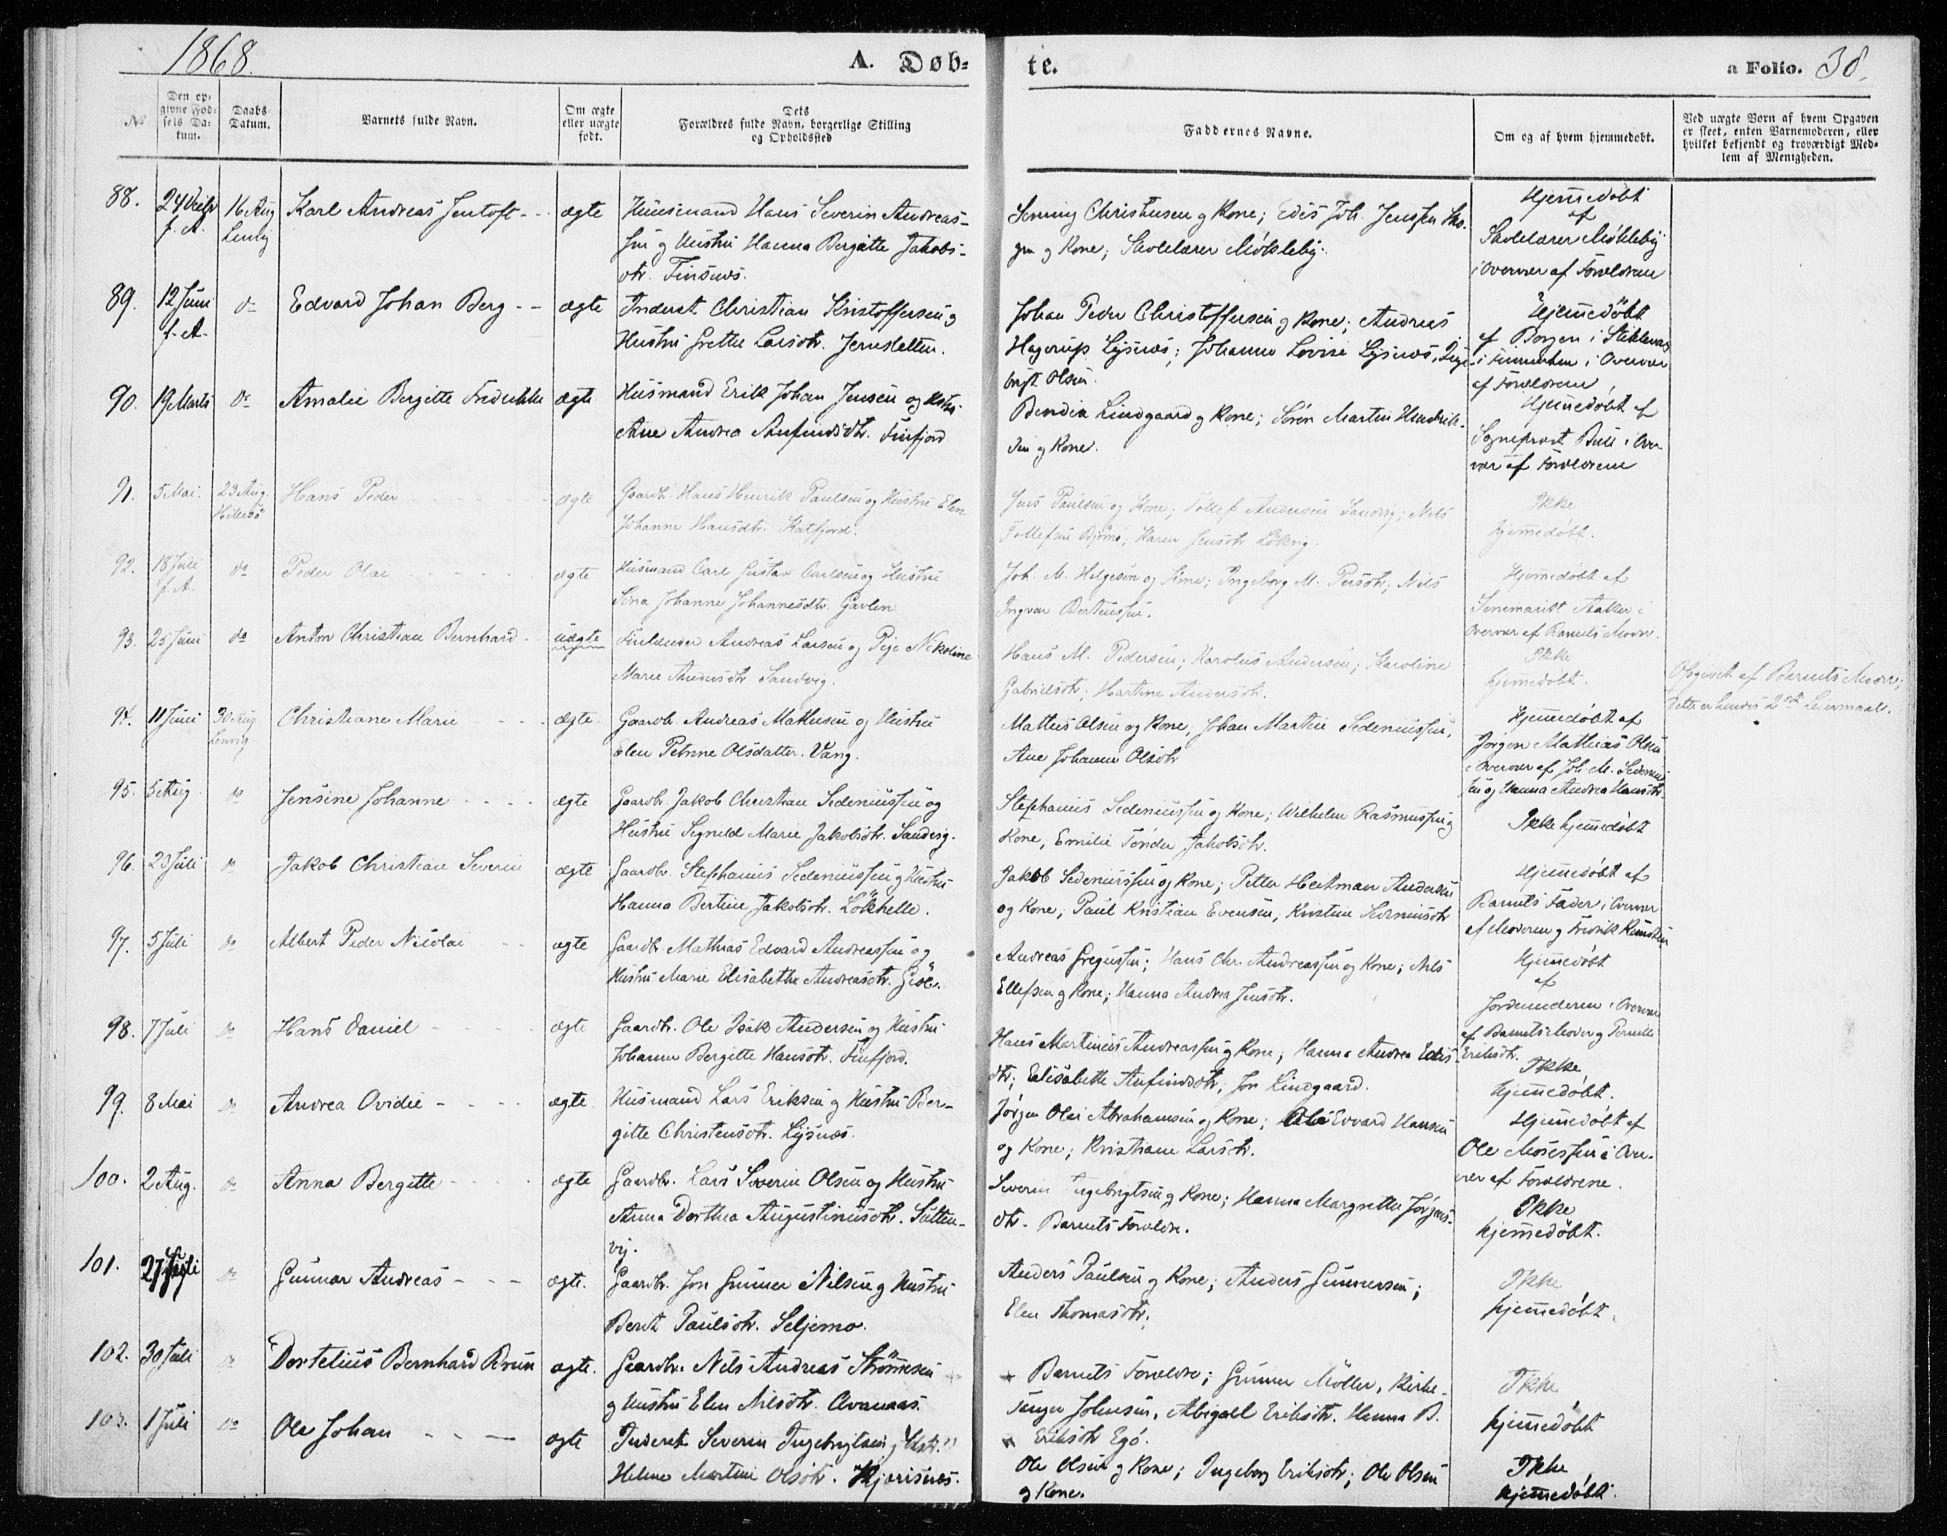 1868.
A. Døb-
te.
a Folio. 38.
No
Den op-
givne Fød-
sels Da-
tum.
Daabs
Datum.
Barnets fulde Navn.
Om ægte
eller uægte
født.
Dets
Forældres fulde Navn, borgerlige Stilling
og Opholdssted
Faddernes Navne.
Om og af hvem hjemmedøbt.
Ved uægte Børn af hvem Opgaven
er skeet, enten Barnemoderen, eller
hvilket bekjendt og troværdigt Med-
lem af Menigheden.
88. 24 f. A. 16 Aug Lenvig Karl Andreas Jentoft - - ægte
Huusmand Hans Severin Andreas-
sen og Hustru Hanna Bergitte Jakobs-
dtr. Finsnæs.
Christensen og Kone; Edis Joh. Jenssen
og Kone; Skolelærer Mökleby.
Hjemmedøbt
af
Skolelærer Mökleby
i Overvær af Forældrene
89. 12 Juni f. A. do Edvard Johan Berg - - ægte
Inderst Christian Kristoffersen og
Hustru Grethe Larsdtr. Jernsletten.
Johan Peder Christoffersen og Kone; Andreas
Hagerup Lysnæs; Johanna Lovise Lysnæs, Inge-
brigt Olsen.
Hjemmedöbt
af Borgen i
i Overvær
af Forældrene
90. 19 Marts do Amalie Bergitte Fredrikke ægte
Huusmand Erik Johan Jensen og Hstr.
Ane Andrea Anfindsdtr. Finfjord
Lindgaard og Kone; Sören Martin Hendrik-
sen og Kone.
Hjemmedöbt af
Sogneprest Bull i Over-
vær af Forældrene
91. 5 Mai. 23 Aug. Hillesö Hans Peder ægte
Gaardb. Hans Henrik Paulsen og Hustru Elen
Johanne Hansdtr. Katfjord.
Jens Paulsen og Kone; Tollef Andersen Sandvig; Nils
Tollefsen; Karen Jensdtr Lökvig.
Ikke
hjemmedöbt.
92. 18 Juli f. A. do Peder Olai ægte
Huusmand Carl Gustav Carlsen og Hustru
Johanne Johannesdtr. Gavlen
Joh. M. Helgesen og Kone; Ingeborg M. Persdtr; Nils
Ingvar Berteussen.
Hjemmedöbt af
Aaker i
Overvær af Barnets Moder.
93. 25 Juni do Anton Christian Bernhard uægte
Andreas Larsen og Pige Nikoline
Marie Andersdtr Sandvig.
Hans M. Pedersen; Karolus Andersen; Karoline
Gabrielsdtr; Hartine Andersdtr.
Ikke
hjemmedöbt.
Opgivet af Barnets Moder;
dette er hendes 2det Leiermaal.
94. 11 Juni 30 Aug Lenvig. Christiane Marie ægte.
Gaardb. Andreas Mathisen og Hustru
Elen Petrine Olsdatter. Vang.
Matheus Olsen og Kone, Johan Martin Sedeniussen,
Ane Johanna Olsdtr
Hjemmedöbt af
Jörgen Mathias Olsen
i Overvær af Joh. M. Sedenius-
sen og Hanna Andrea Hansdtr.
95. 5 Aug. do Jensine Johanne ægte
Gaardb. Jakob Christian Sedeniussen og
Hustru Marie Jakobsdtr.
Stephanus Sedeniussen og Kone; Wilhelm Rasmussen og
Kone, Emilie Tönder Jakobsdtr.
Ikke hjemmedöbt
96. 23 Juli do Jakob Christian Severin ægte
Gaardb. Stephanus Sedeniussen og Hustru
Hanna Bertine Jakobsdtr. Lökhelle.
Jakob Sedeniussen og Kone; Petter Heitman Andersen
og Kone; Paul Kristian Evensen, Kristine Sedeniusdtr
Hjemmedöbt af
Barnets Fader i Overvær
af Moderen og Fredrik
97. 5 Juli do Albert Peder Nicolai ægte
Gaardb. Mathias Edvard Andreassen og
Hustru Marie Elisabetha Andreasdtr. Gisö.
Andreas Gregussen; Hans Chr. Andreassen og Kone; Nils
Ellefsen og Kone; Hanna Andrea Jensdtr.
Hjemmedöbt
af
Jordemoderen i Overvær
af Barnets Moder og Pernelle
Eriksdtr.
98. 7 Juli do Hans Daniel ægte
Gaardb. Ole Isak Andersen og Hustru
Johanna Bergitte Hansdtr. Finfjord.
Hans Martinus Andreassen og Kone; Hanna Andrea Edis-
dtr; Elisabethe Anfindsdtr, Jon Lindgaard.
Ikke
hjemmedöbt.
99. 8 Mai do Andrea Ovidie - ægte.
Huusmand Lars Eriksen og Hustru Ber-
gitte Christensdtr. Lysnæs.
Jörgen Olai Abrahamsen og Kone; Ole Edvard Hansen
og Kone; Kristiane Larsdtr.
Hjemmedöbt af
Ole Mosessen i Over-
vær af Forældrene.
100. 2 Aug. do Anna Bergitte ægte
Gaardb. Lars Severin Olsen og Hustru
Anna Dorthea Augustinusdtr. Sulten-
vig.
Severin Ingebrigtsen og Kone; Hanna Margrethe Jörgens-
dtr. Barnets Forældre.
Ikke
hjemmedöbt.
101. 27 Juli do Gunnar Andreas - - - ægte.
Gaardb. Jon Gunner Nilsen og Hustru
Berit Paulsdtr. Seljemo.
Anders Paulsen og Kone; Anders Gunnersen;
Elen Thomasdtr.
Ikke
hjemmedöbt.
102. 30 Juli do Dortelius Bernhard Brun ægte.
Gaardb. Nils Andreas Strömesen
og Hustru Elen Nilsdtr.
Barnets Forældre; Gunner Möller, Kirke-
sanger Johnsen, Abigael Eriksdtr. Hanna B.
Eriksdtr Egö.
Ikke
hjemmedöbt
103. 1 Juli do Ole Johan - - - ægte
Inderst Severin Ingebrigtsen og Hstr.
Helene Martine Olsdtr.
Ole Olsen og Kone; Ingeborg Eriksdtr; Ole Olsen
og Kone.
Ikke
hjemmedöbt.